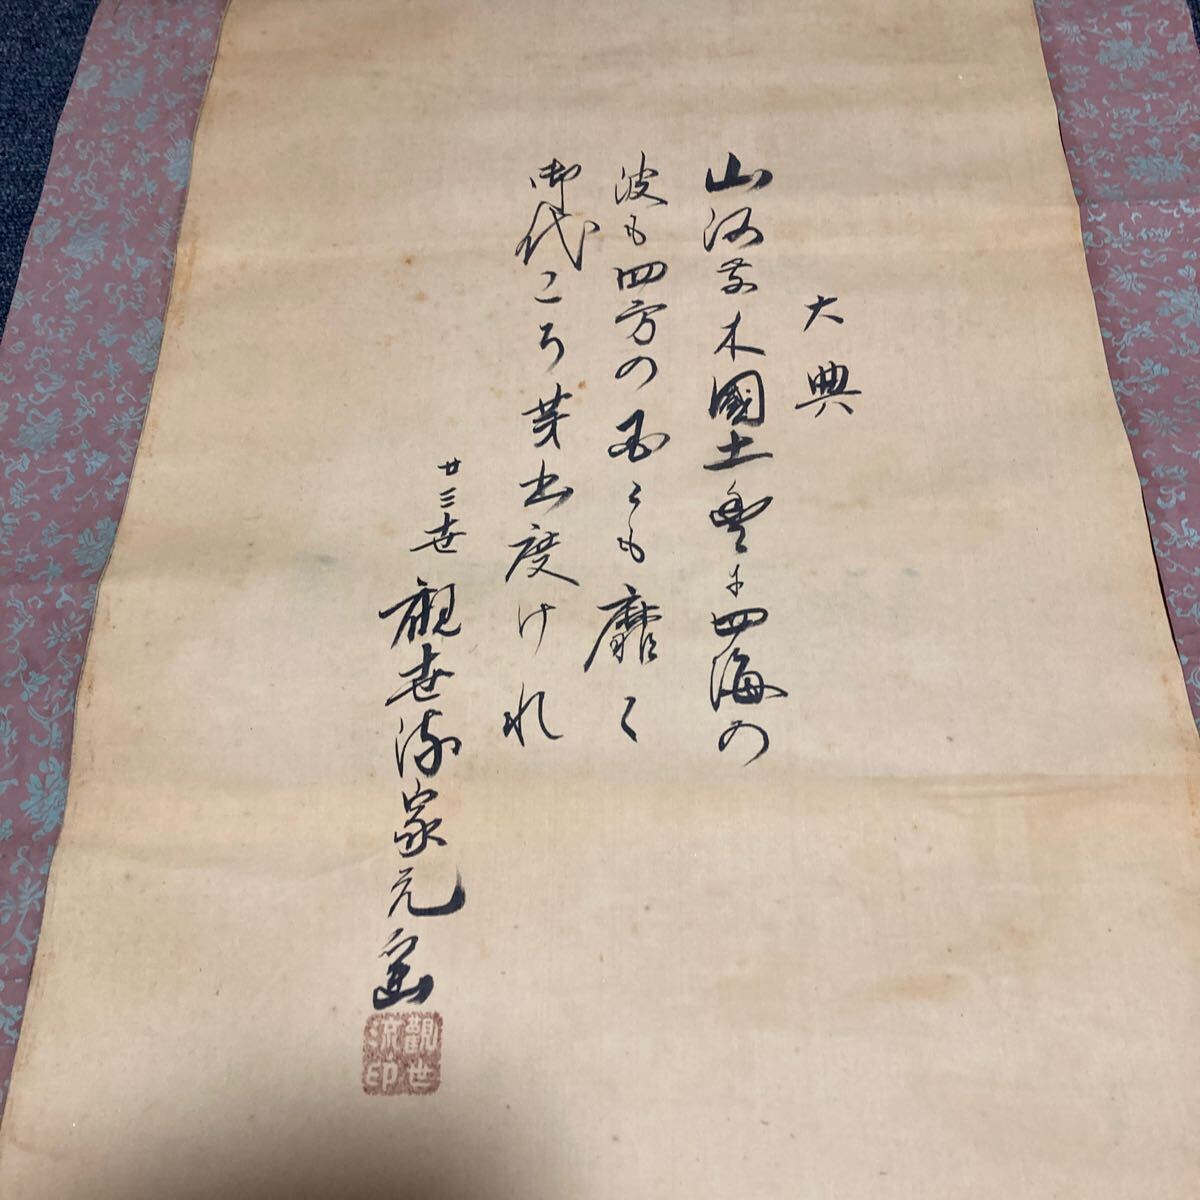 大典
山河草木國土豊に四海の
波も四方の国々も靡く
御代こそ芽出度けれ
廿三世 観世流家元
觀世
流印